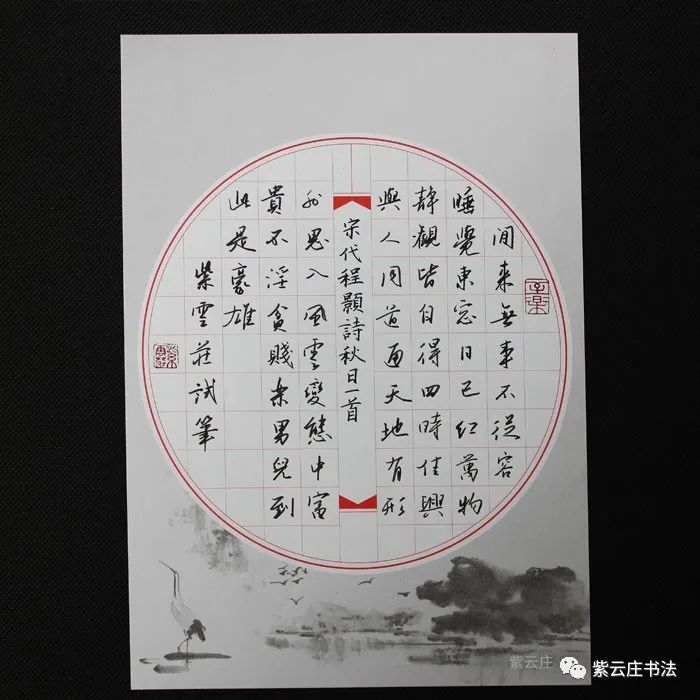 閒来無事不從容
睡覺東窓日已紅萬物
静觀皆自得四時佳興
與人同道通天地有形
宋代程顥詩秋日一首
外思入風雲變態中富
貴不淫貧賤樂男兒到
此是豪雄
紫雲莊試筆
紫云庄
紫云庄书法